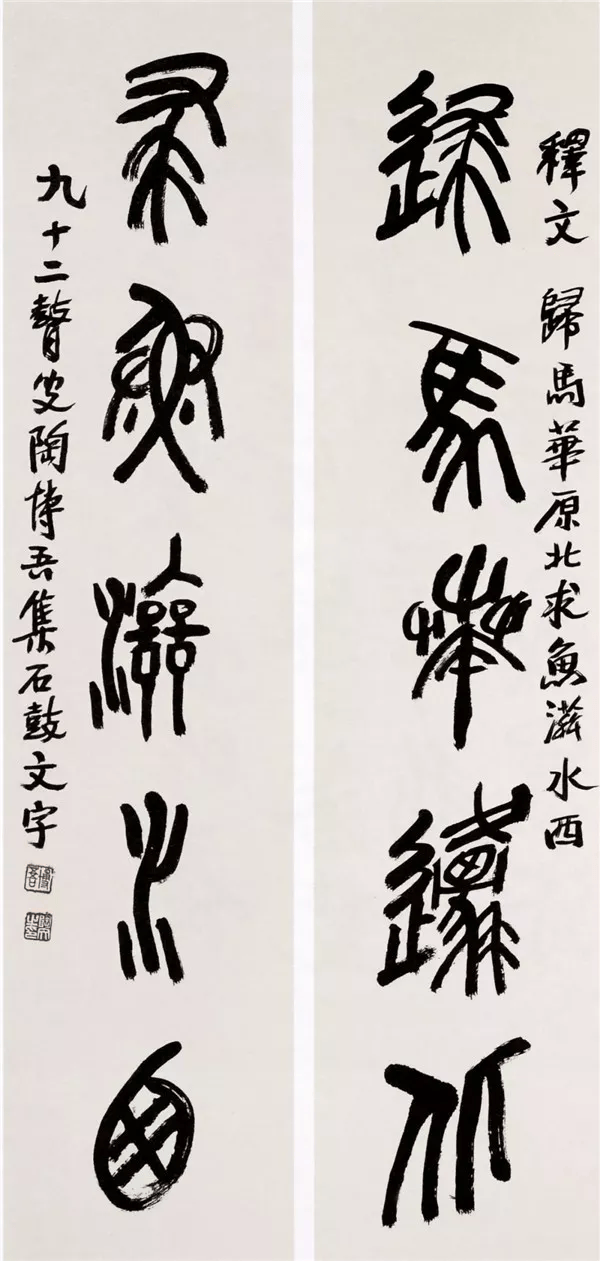 釋文 歸馬華原北求魚水西
歸馬華原北
求魚水西
九十二瞽叟陶博吾集石鼓文字
博吾